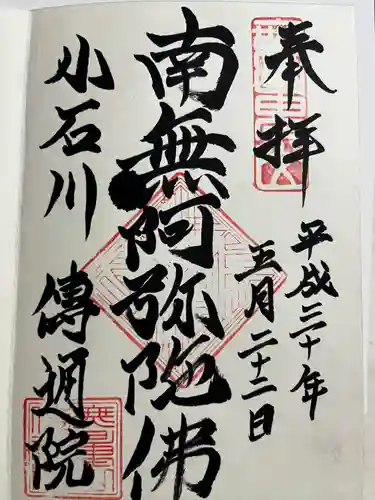 奉拝
平成三十年
五月二十二日
南無阿弥陀佛
小石川 傳通院